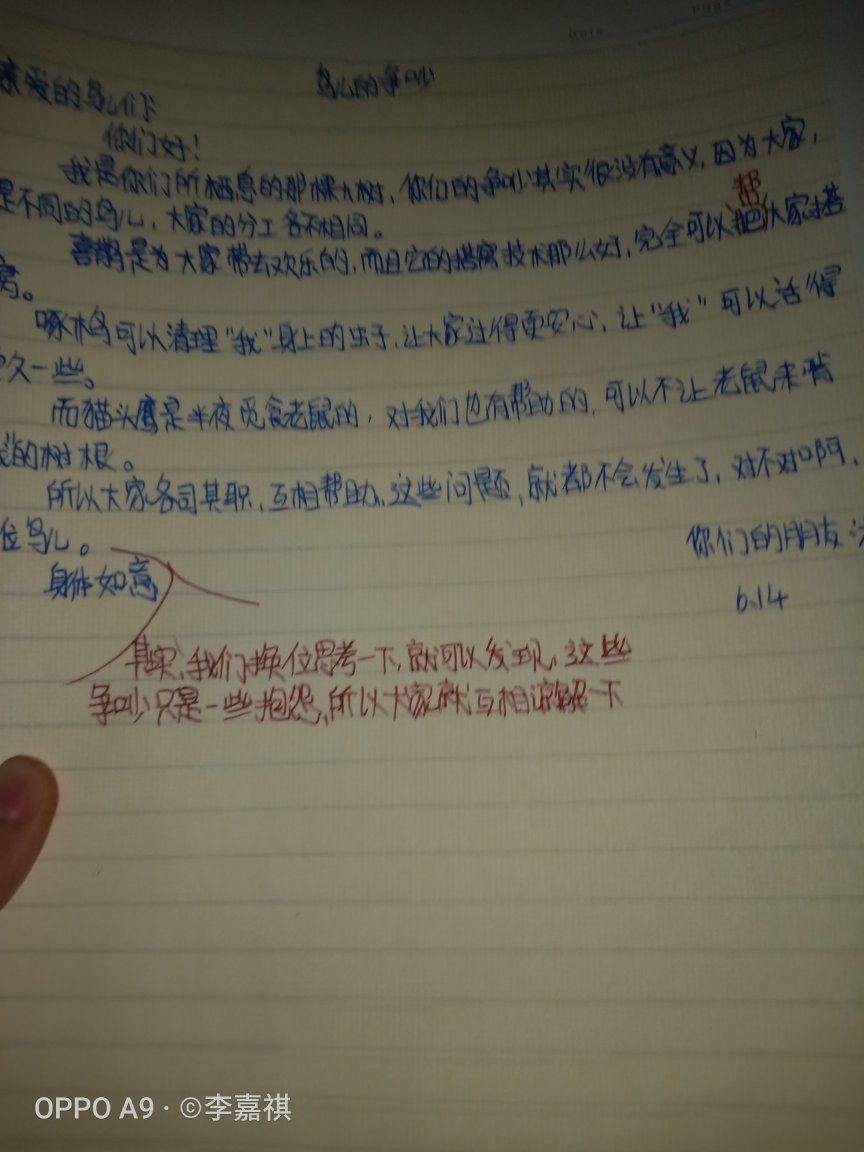 Date
Page
鸟儿的争吵
亲爱的鸟儿们：
你们好！
我是你们所栖息的那棵大树，你们的争吵其实很没有意义，因为大家，
是不同的鸟儿，大家的分工各不相同。
帮
喜鹊是为大家带去欢乐的，而且它的搭窝技术那么好，完全可以把大家搭
窝。
啄木鸟可以清理“我”身上的虫子，让大家过得更安心，让“我”可以活得
久一些。
而猫头鹰是半夜觅食老鼠的，对我们也有帮助的，可以不让老鼠来啃
我的树根。
所以大家各司其职，互相帮助，这些问题，就都不会发生了，对不对啊，
位鸟儿。
你们的朋友
身体如意
6.14
其实，我们换位思考一下，就可以发现，这些
争吵只是一些抱怨，所以大家就互相谅解一下
OPPO A9 · ©李嘉祺